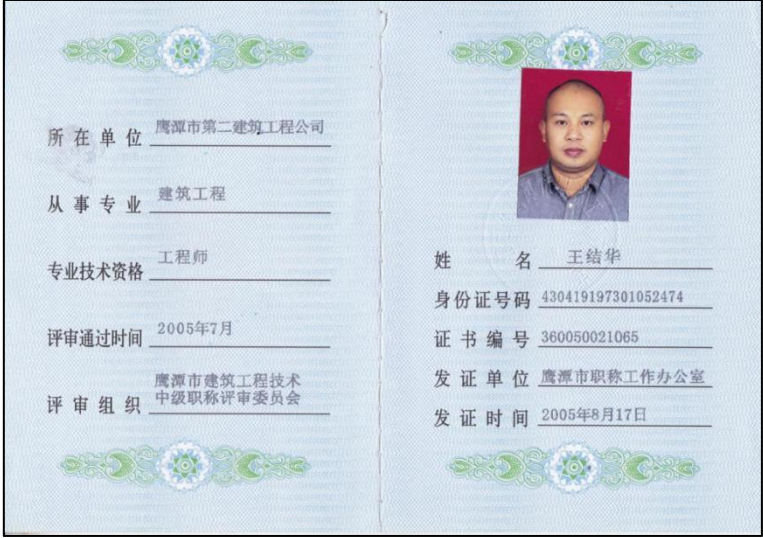 所在单位 鹰潭市第二建筑工程公司
从事专业 建筑工程
专业技术资格 工程师
评审通过时间 2005年7月
评审组织 鹰潭市建筑工程技术
中级职称评审委员会
姓名 王结华
身份证号码 430419197301052474
证书编号 360050021065
发证单位 鹰潭市职称工作办公室
发证时间 2005年8月17日